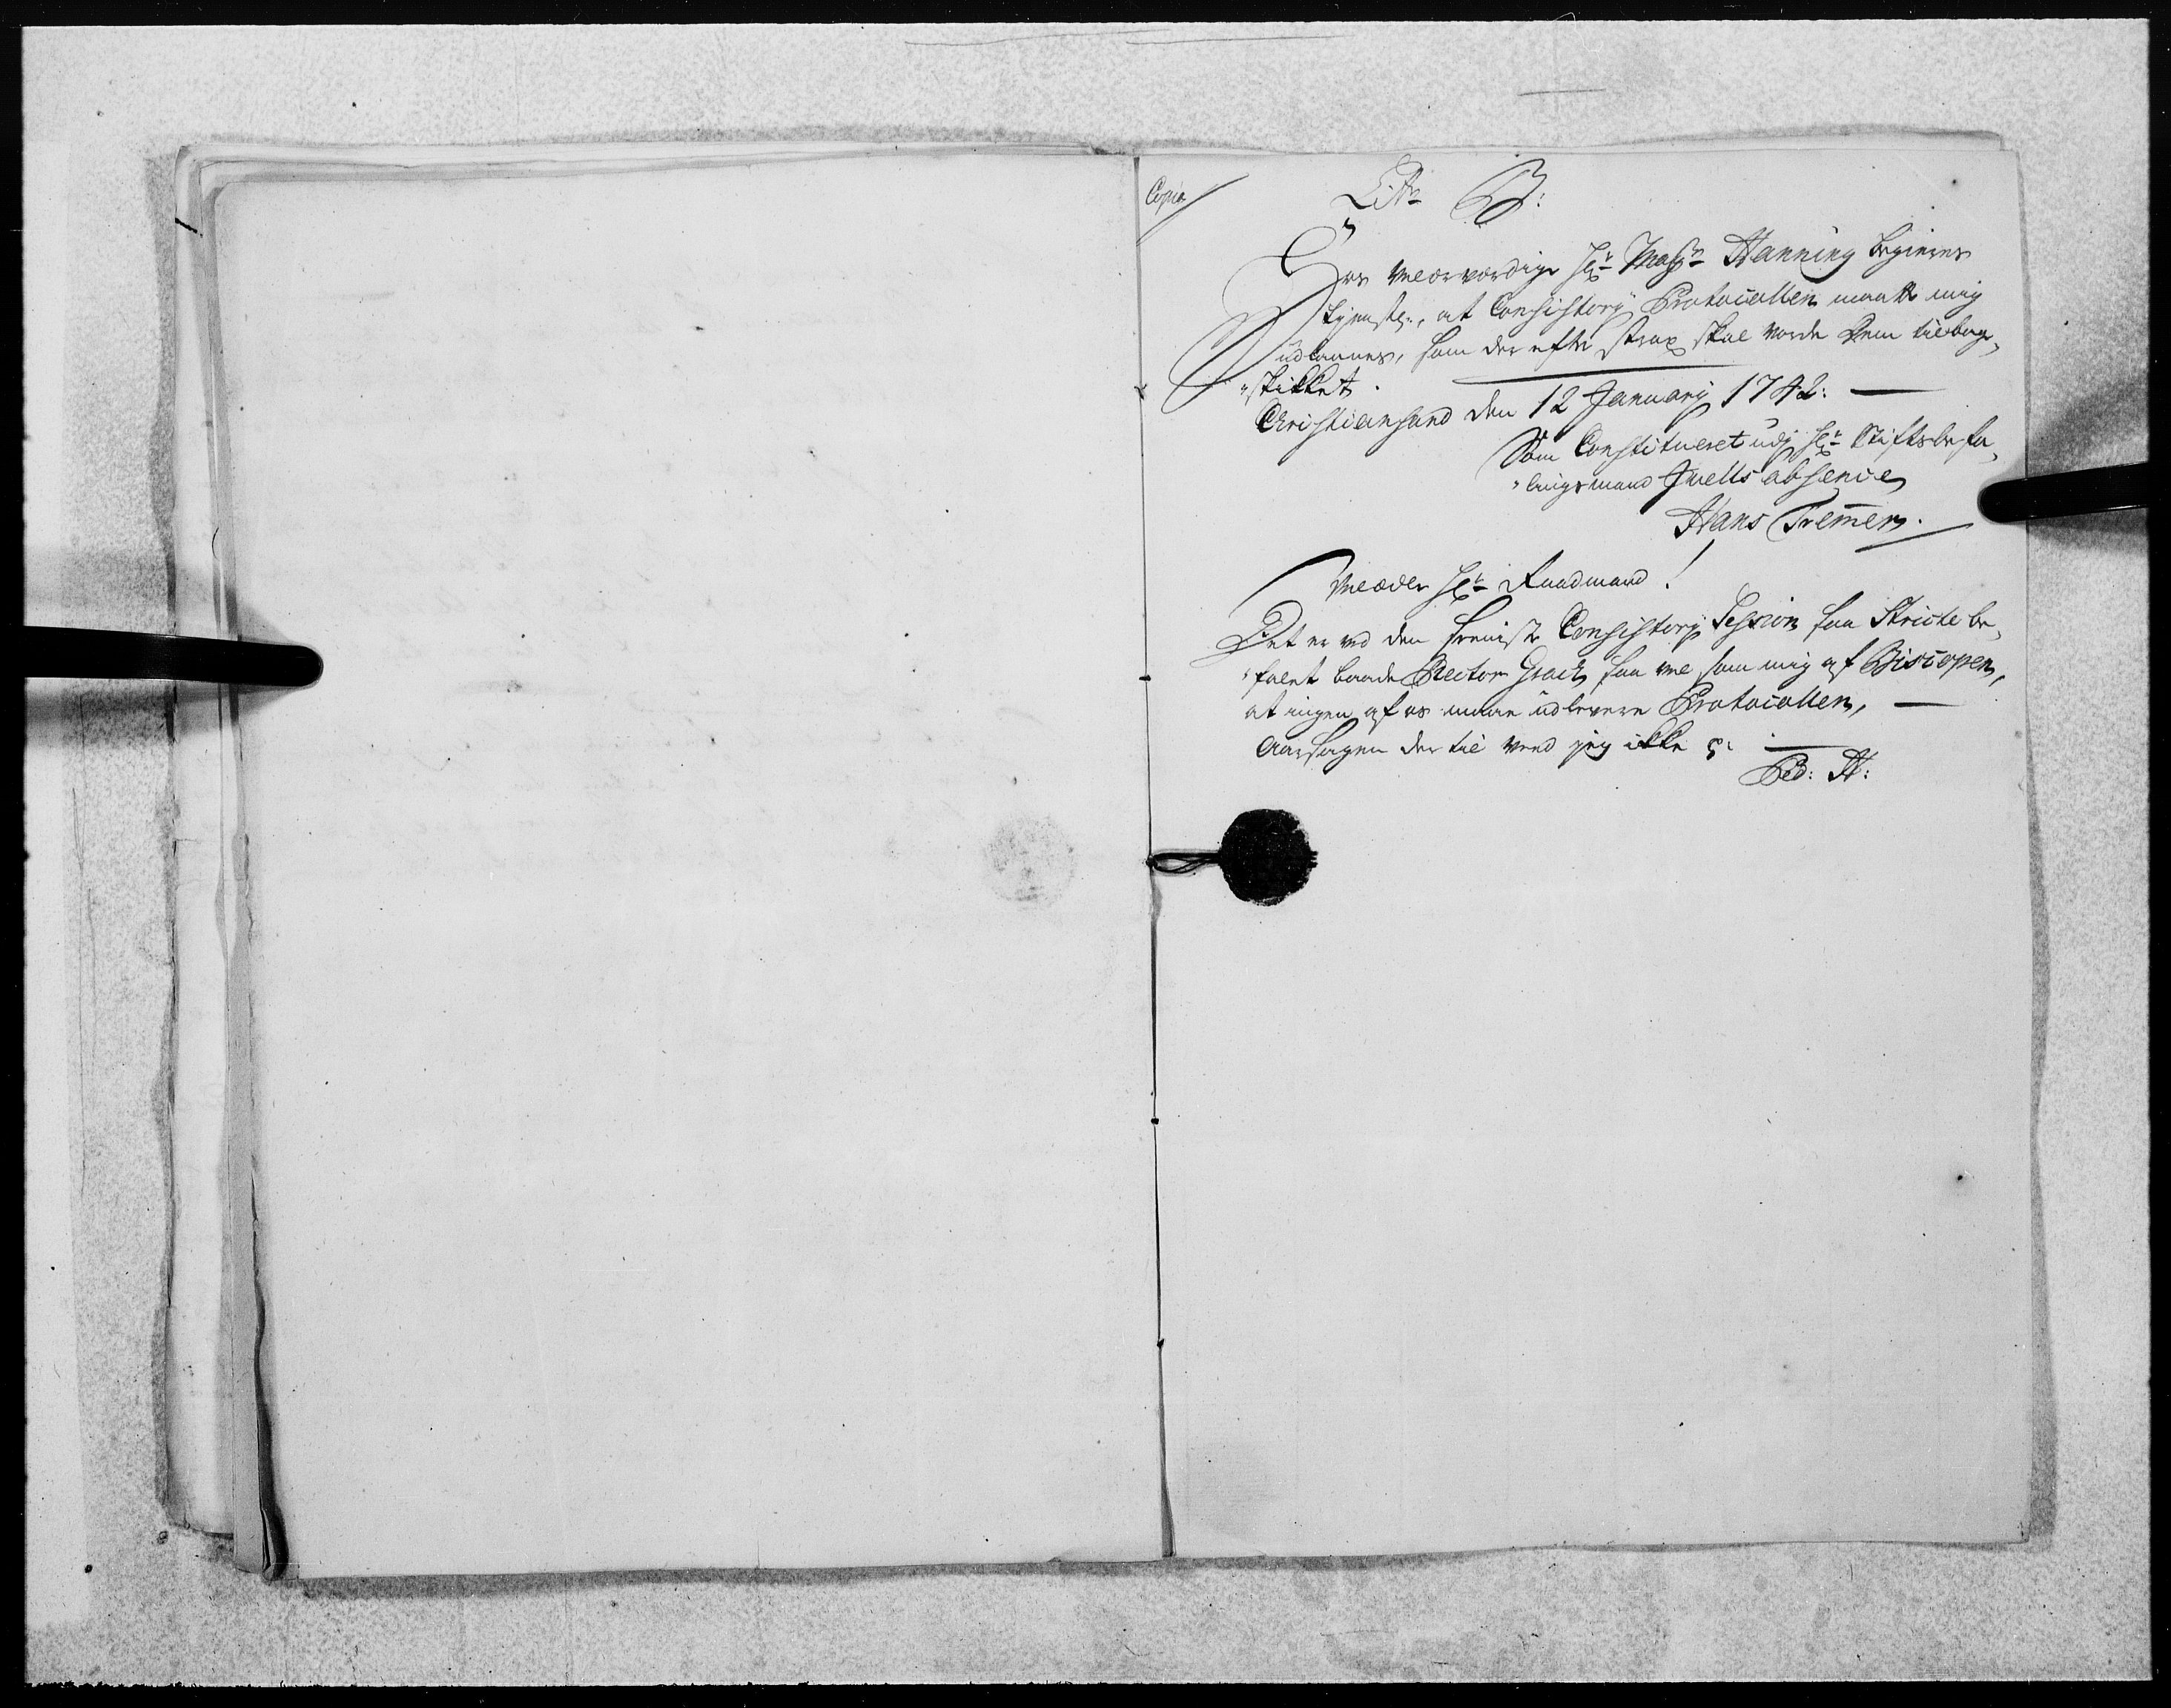 Copia
Litr B:
Hos Velærværdige Hr Magr Hanning begieres
tienstl:, at Consistorij Protocollen maatte mig
udlaanes, som der efter strax skal worde Dem tilbage,
"skikket.
Christiansand den 12 Januarij 1742:
Som Constitueret udj Hr Stiftsbefa,
"lingsmand Juells absence
Hans Tremmer.
Velædle Hr Raadmand!
Det er ved den seeniste Consistorij Session saa Stricte be,
"falet baade Rector Grach saa vel som mig af Biscopen,
at ingen af os maae udlevere Protocollen,
Aarsagen der til veed jeg ikke
Ped: H: